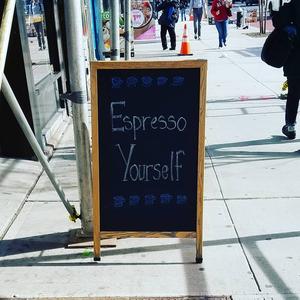 Espresso
Yourself